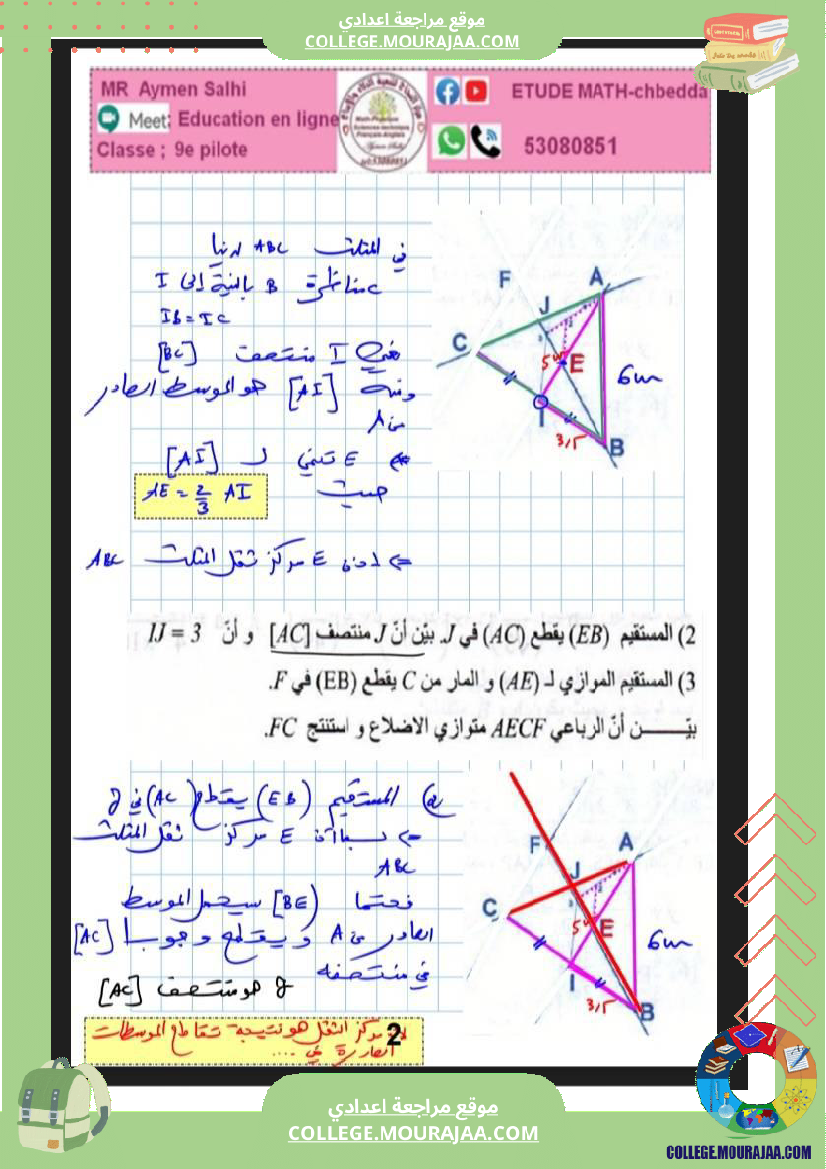 موقع مراجعة اعدادي
COLLEGE.MOURAJAA.COM
MR Aymen Salhi
Meet: Education en ligne
Classe ; 9e pilote
ETUDE MATH-chbedda
53080851
في المثلث ABC لدينا
C مناظرة B بالنسبة إلى I
IB = IC
يعني I منتصف [BC]
ومنه [AI] هو الموسط الصادر
من A
E تنتمي لـ [AI]
حيث
AE = 2/3 AI
=> إذن E مركز ثقل المثلث ABC
F
A
J
C
5
E
6cm
I
3,5
B
2) المستقيم (EB) يقطع (AC) في J. بيّن أنّ J منتصف [AC] و أنّ IJ = 3
3) المستقيم الموازي لـ (AE) و المار من C يقطع (EB) في F.
بيّـــــن أنّ الرباعي AECF متوازي الاضلاع و استنتج FC.
المستقيم (EB) يقطع (AC) في J
=> بما أن E مركز ثقل المثلث
ABC
فحتما [BE) سيحمل الموسط
الصادر من
و يقطع وجوبا [AC]
في منتصفه
J هو منتصف [AC]
F
A
J
C
5
E
6cm
I
3,5
B
مركز الثقل هو نتيجة تقاطع الموسطات
الصادرة
2
موقع مراجعة اعدادي
COLLEGE.MOURAJAA.COM
COLLEGE.MOURAJAA.COM